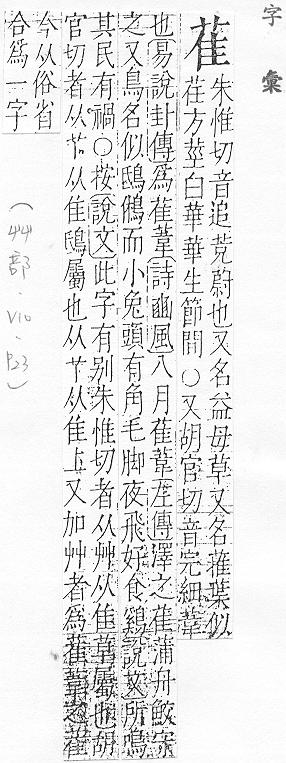 字彙
萑
朱惟切音追茺蔚也又名益母草又名蓷葉似
荏方莖白華華生節間○又胡官切音完細葦
也易說卦傳為萑葦詩豳風八月萑葦左傳澤之萑蒲舟鮫守
之又鳥名似鴟鵂而小兔頭有角毛脚夜飛好食雞說文所鳴
其民有禍○按說文此字有别朱惟切者从艸从隹草屬也胡
官切者从𦫳从隹鴟屬也从𦫳从隹上又加艸者為
今从俗省
合為一字
(艸部.V10.P23)